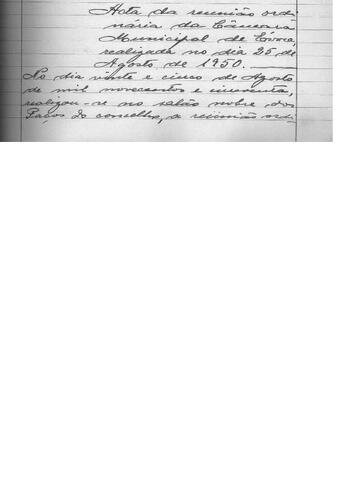 Acta da reunião ordi-
nária da Câmara
Municipal de Évora,
realizada no dia 25 de
Agosto de 1950.
No dia vinte e cinco de Agosto
de mil novecentos e cincoenta,
realizou-se no salão nobre dos
Paços do concelho, a reunião ordi-